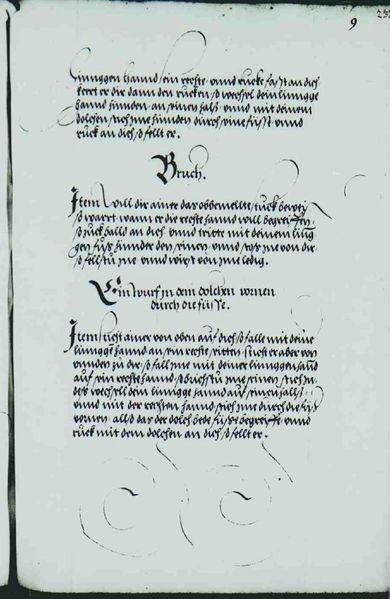 9
linnggen hannd sein rechte vnnd rucke fasst an dich
keret er dir dann den rucken so wechsel dein linngge
hannd hinnden an seinen halß vnnd mit deinem
dolchen zeüch ime hinden durch seine füsß vnnd
ruck an dich so fellt er.
Bruch.
Item will dir ainer das obbemellte stuck
so wart wann er die rechte hannd will begreiffen,
so ruck ballt an dich vnnd tritte mit deinem linng
gen fuß hinnder den seinen vnnd ime von dir
so fellstu ime vnnd wirst von ime ledig.
Ein wurf mit dem dolchen vornen
durch die füsse.
Item sticht ainer von oben auf dich so falle mit deiner
linnggen hannd an sein rechte seitten sticht er aber von
vnnden zu dir so fall ime mit deiner linnggen hannd
auf sein rechte hannd so brichstu ime seinen stich in
des wechsell dein linngge hannd auf seinen hallß
vnnd mit der rechten hannd zeüch ime durch die füß
vornen allso das der dolch bede füsß begreiffe vnnd
ruck mit dem dolchen an dich so fellt er.